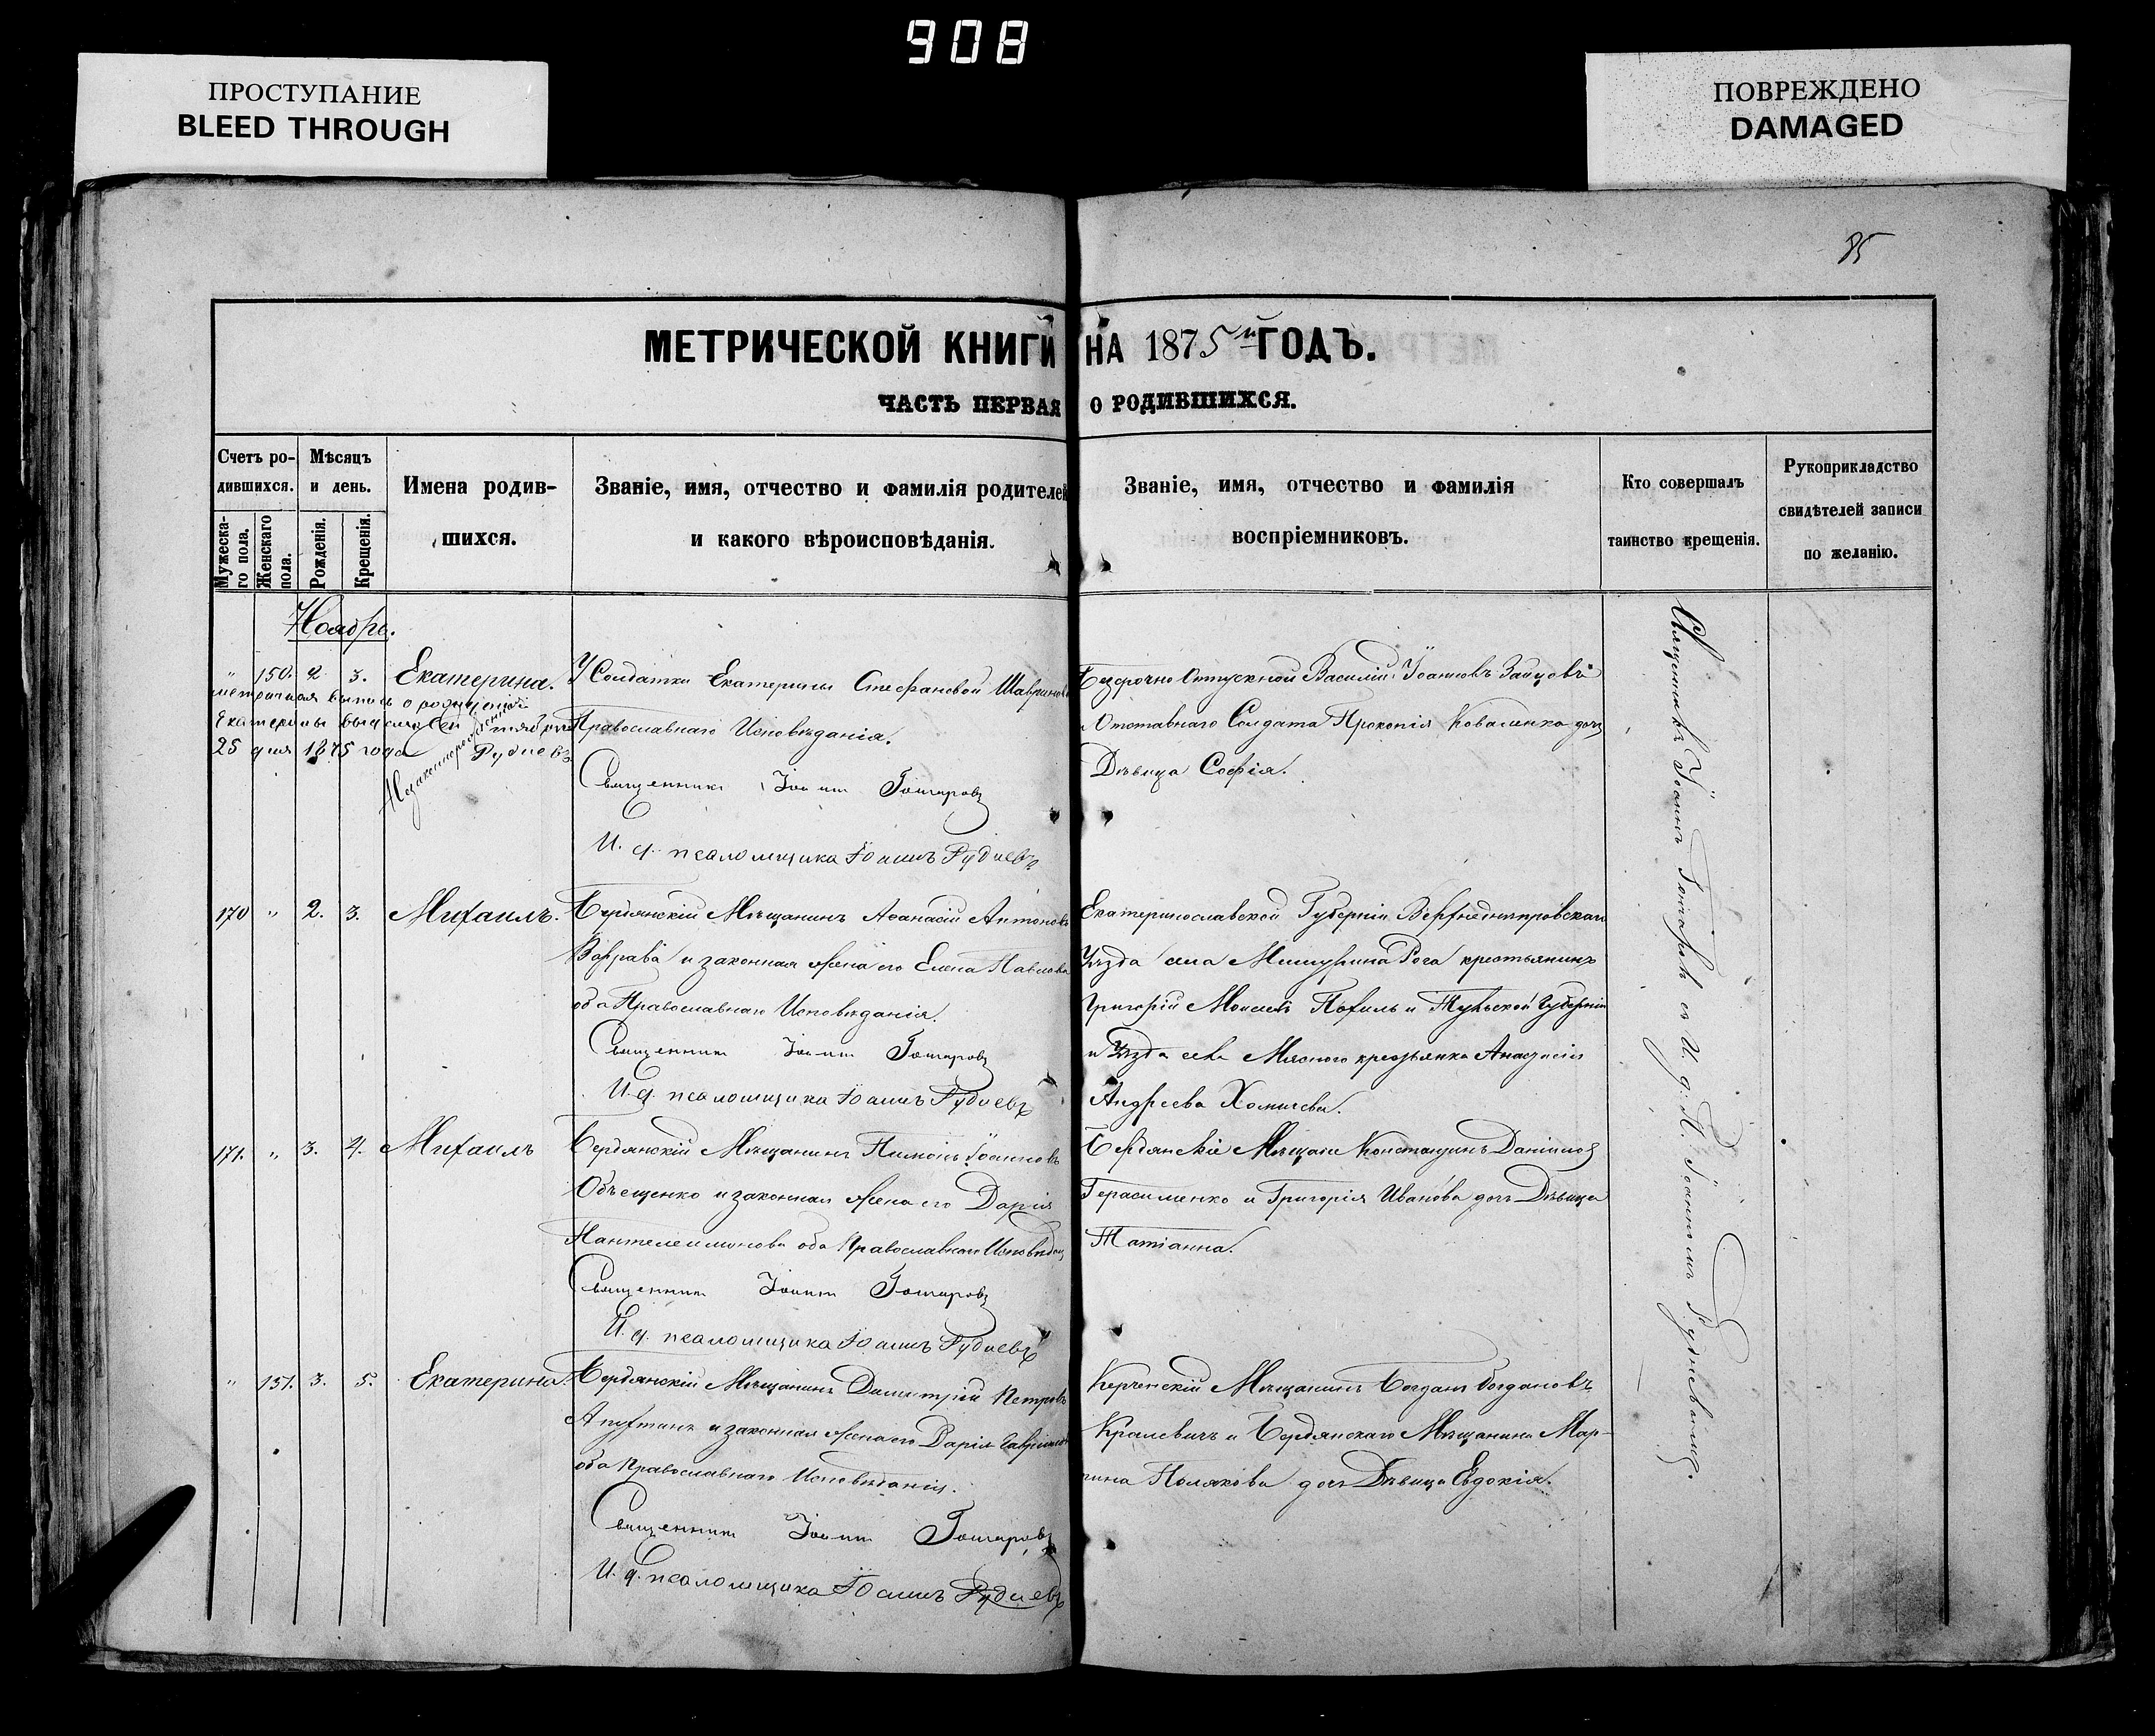 908
ПРОСТУПАНИЕ
BLEED THROUGH
ПОВРЕЖДЕНО
DAMAGED
85
МЕТРИЧЕСКОЙ КНИГИ НА 1875й ГОДЪ.
ЧАСТЬ ПЕРВАЯ О РОДИВШИХСЯ.
Счетъ ро-
дившихся.
Мужеска-
го пола.
Женскаго
пола.
Мѣсяцъ
и день.
Рожденія.
Крещенія.
Имена родив-
шихся.
Званіе, имя, отчество и фамилія родителей
и какого вѣроисповѣданія.
Званіе, имя, отчество и фамилія
воспріемниковъ.
Кто совершалъ
таинство крещенія.
Рукоприкладство
свидѣтелей записи
по желанію.
Ноябрь.
" 150. 2 3. Екатерина.
метрическая выпись о рожденіи
Екатерины выдана
25 дня 1875 года Рудневъ
Незаконнорожденная
У Солдатки Екатерины Стефановой
Православнаго Исповѣданія.
Священникъ Іоаннъ Гончаровъ
И. д. псаломщика Іоаннъ Рудневъ
Безсрочно отпускной Василій Іоанновъ Зайцовъ
и Отставнаго Солдата Прокопія Коваленка дочь
Дѣвица Софія.
170 " 2. 3. Михаилъ.
Бердянскій Мѣщанинъ Аѳанасій Антоновъ
и законная жена его Елена Павлова
оба Православнаго Исповѣданія.
Священникъ Іоаннъ Гончаровъ
И. д. псаломщика Іоаннъ Рудневъ
Екатеринославской Губерніи Верхнеднѣпровскаго
Уѣзда села Мишурина Рога крестьянинъ
Григорій и Тульской Губерніи
и Уѣзда села Мяснаго крестьянка Анастасія
Андреева Хомичева.
171. " 3. 4. Михаилъ
Бердянскій Мѣщанинъ Пименъ Іоанновъ
Объещенко и законная жена его Дарія
Пантелеимонова оба Православнаго Исповѣдан
Священникъ Іоаннъ Гончаровъ
И. д. псаломщика Іоаннъ Рудневъ
Бердянскіе Мѣщане Константинъ Даніиловъ
Герасименко и Григорія Иванова дочь Дѣвица
Татіанна.
" 151. 3. 5. Екатерина.
Бердянскій Мѣщанинъ Димитрій Петровъ
Апухтинъ и законная жена его Дарія
оба Православнаго Исповѣданія.
Священникъ Іоаннъ Гончаровъ
И. д. псаломщика Іоаннъ Рудневъ
Керченскій Мѣщанинъ Богданъ Богдановъ
Кралевичъ и Бердянскаго Мѣщанина Мар-
тина Полякова дочь Дѣвица Евдокія.
Священникъ Іоаннъ Гончаровъ съ И. д. П. Іоанномъ Рудневымъ.